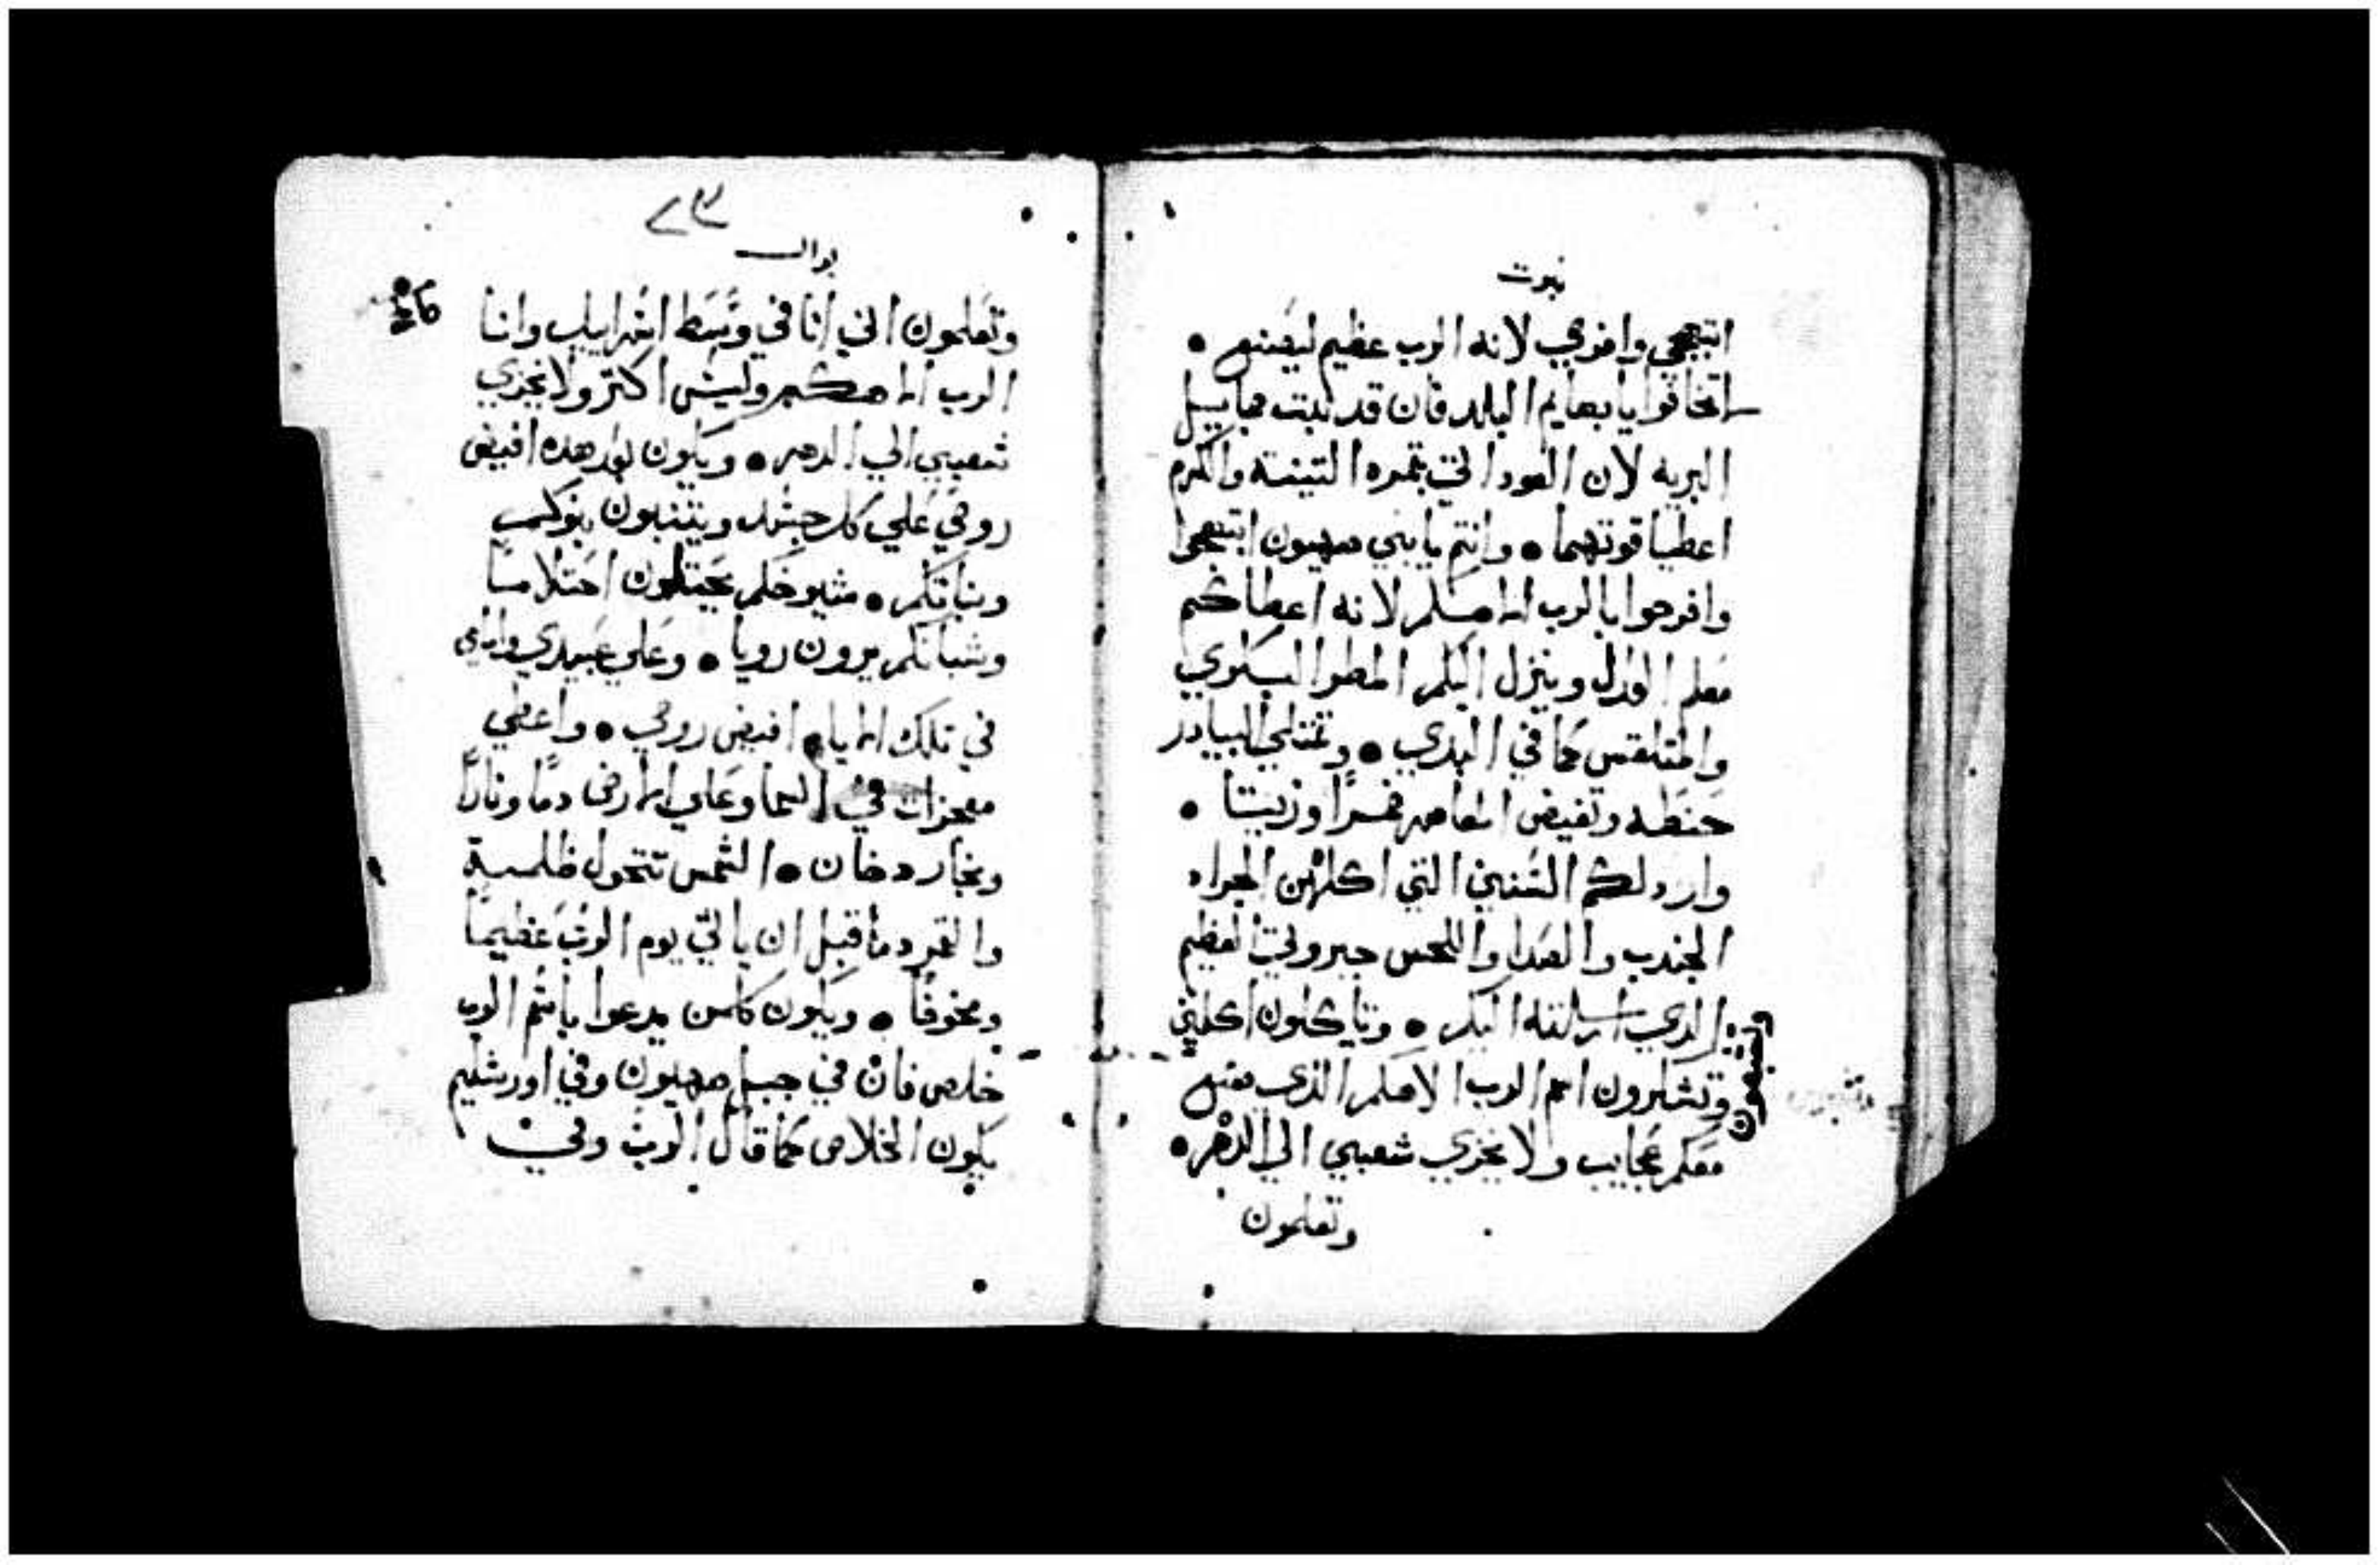 نبوت
ابتهجي وافرحي لانه الرب عظيم ليصنع •
لاتخافوا يا بهايم البلد فان قد نبت
البريه لان العود اتي بثمره التينة والكرم
اعطيا قوتهما • وانتم يا بني صهيون ابتهجوا
وافرحوا بالرب الاهكم لانه اعطاكم
معلم العدل وينزل اليكم المطر البكوري
كما في البدي • وتمتلي البيادر
حنطه وتفيض المعاصر خمرًا وزيتًا •
واردلكم السنين التي اكلهن الجراد
الجندب والصدا جبروتي العظيم
الدي ارسلته اليكم • وتاكلون اكلين
وتشبعون
وتشكرون اسم الرب الاهكم الذي صنع
معكم عجايب ولا يخزي شعبي الي الدهر •
وتعلمون
يوال
٢٣
وتعلمون اني انا في وسط اسراييل وانا
الرب الاهكم وليس اكثر ولا يخزي
شعبي الي الدهر • ويكون بعد هده افيض
روحي علي كل جسد ويتنبون بنوكم
وبناتكم • شيوخكم يحتلمون احتلامًا
وشبانكم يرون رويا • وعلي عبيدي واماي
في تلك الايام افيض روحي • واعطي
معجزات في السما وعلي الارض دمًا ونارًا
وبخار دخان • الشمس تتحول ظلمة
والقمر دما قبل ان ياتي يوم الرب عظيمًا
ومخوفًا • ويكون كلمن يدعوا باسم الرب
خلص فان في جبل صهيون وفي اورشليم
يكون الخلاص كما قال الرب وفي